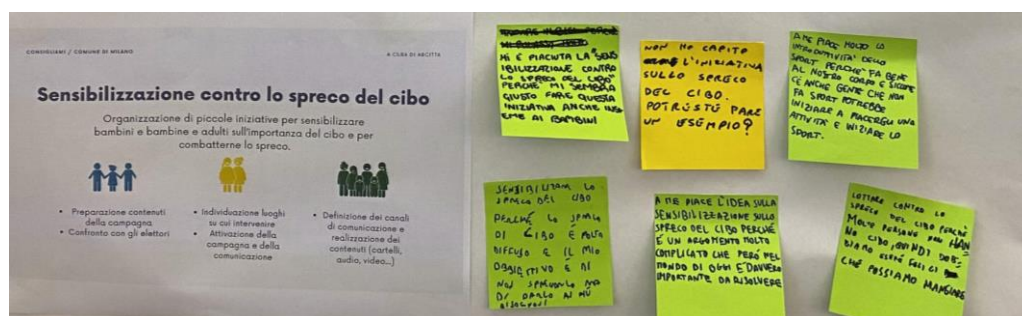 CONSIGLIAMI / COMUNE DI MILANO
A CURA DI ARCITTÀ
Sensibilizzazione contro lo spreco del cibo
Organizzazione di piccole iniziative per sensibilizzare
bambini e bambine e adulti sull'importanza del cibo e per
combatterne lo spreco.
• Preparazione contenuti
della campagna
• Confronto con gli elettori
• Individuazione luoghi
su cui intervenire
• Attivazione della
campagna e della
comunicazione
• Definizione dei canali
di comunicazione e
realizzazione dei
contenuti (cartelli,
audio, video...)
MI È PIACIUTA LA "SENS
IBILIZZAZIONE CONTRO
LO SPRECO DEL CIBO"
PERCHÉ MI SEMBRA
GIUSTO FARE QUESTA
INIZIATIVA ANCHE INSI
EME AI BAMBINI
NON HO CAPITO
L'INIZIATIVA
SULLO SPRECO
DEL CIBO.
POTRESTE FARE
UN ESEMPIO?
A ME PIACE MOLTO LA
DELLO
SPORT PERCHÉ FA BENE
AL NOSTRO CORPO E SICCOME
C'È ANCHE GENTE CHE NON
FA SPORT POTREBBE
INIZIARE A PIACERGLI UNA
ATTIVITÀ E INIZIARE LO
SPORT.
LO
SPRECO DEL CIBO
PERCHÉ LO SPRECO
DI CIBO È MOLTO
DIFFUSO E IL MIO
OBBIETTIVO È DI
NON SPRECARLO MA
DI DARLO AI PIÙ
BISOGNOSI
A ME PIACE L'IDEA SULLA
SENSIBILIZZAZIONE SULLO
SPRECO DEL CIBO PERCHÉ
È UN ARGOMENTO MOLTO
COMPLICATO CHE PERÒ NEL
MONDO DI OGGI È DAVVERO
IMPORTANTE DA RISOLVERE
LOTTARE CONTRO LO
SPRECO DEL CIBO PERCHÉ
MOLTE PERSONE NON HAN
NO CIBO, QUINDI DOB-
BIAMO ESSERE FELICI
CHE POSSIAMO MANGIARE